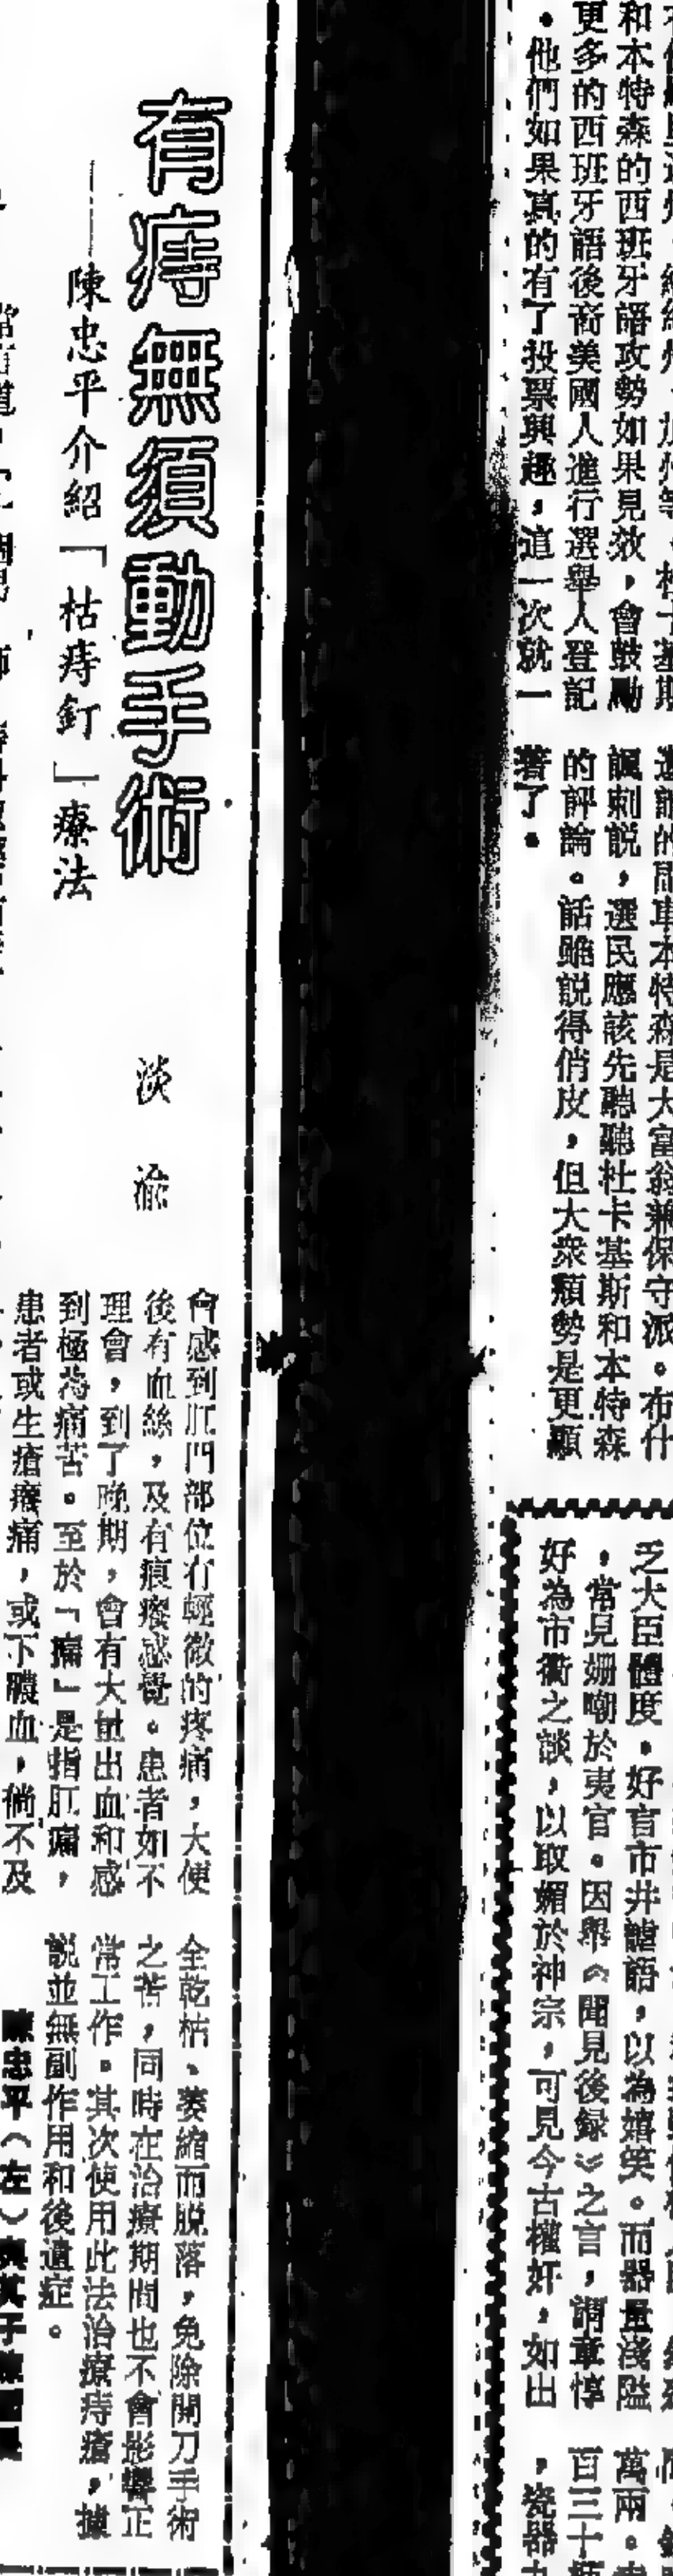 和本特森的西班牙語攻勢如果見效，會鼓勵
更多的西班牙語後裔美國人進行選舉人登記
。他們如果真的有了投票興趣，這一次就一
諷刺説，選民應該先聽聽杜卡基斯和本特森
的評論。話雖説得俏皮，但大衆頹勢是更顯
著了。
乏大臣體度，好言市井謔語，以為嬉笑。而器量淺隘
，常見姍嘲於夷官。因舉《聞見後録》之言，謂章惇
好為市衢之談，以取媚於神宗，可見今古權奸，如出
萬兩。
百三十
，瓷器
有痔無須動手術
——陳忠平介紹「枯痔釘」療法
淡渝
會感到肛門部位有輕微的疼痛，大便
後有血絲，及有痕癢感覺。患者如不
理會，到了晚期，會有大量出血和感
到極為痛苦。至於「瘺」是指肛瘺，
患者或生瘡癢痛，或下膿血，倘不及
全乾枯、萎縮而脱落，免除開刀手術
之苦，同時在治療期間也不會影響正
常工作。其次使用此法治療痔瘡，據
説並無副作用和後遺症。
陳忠平（左）與其子陳